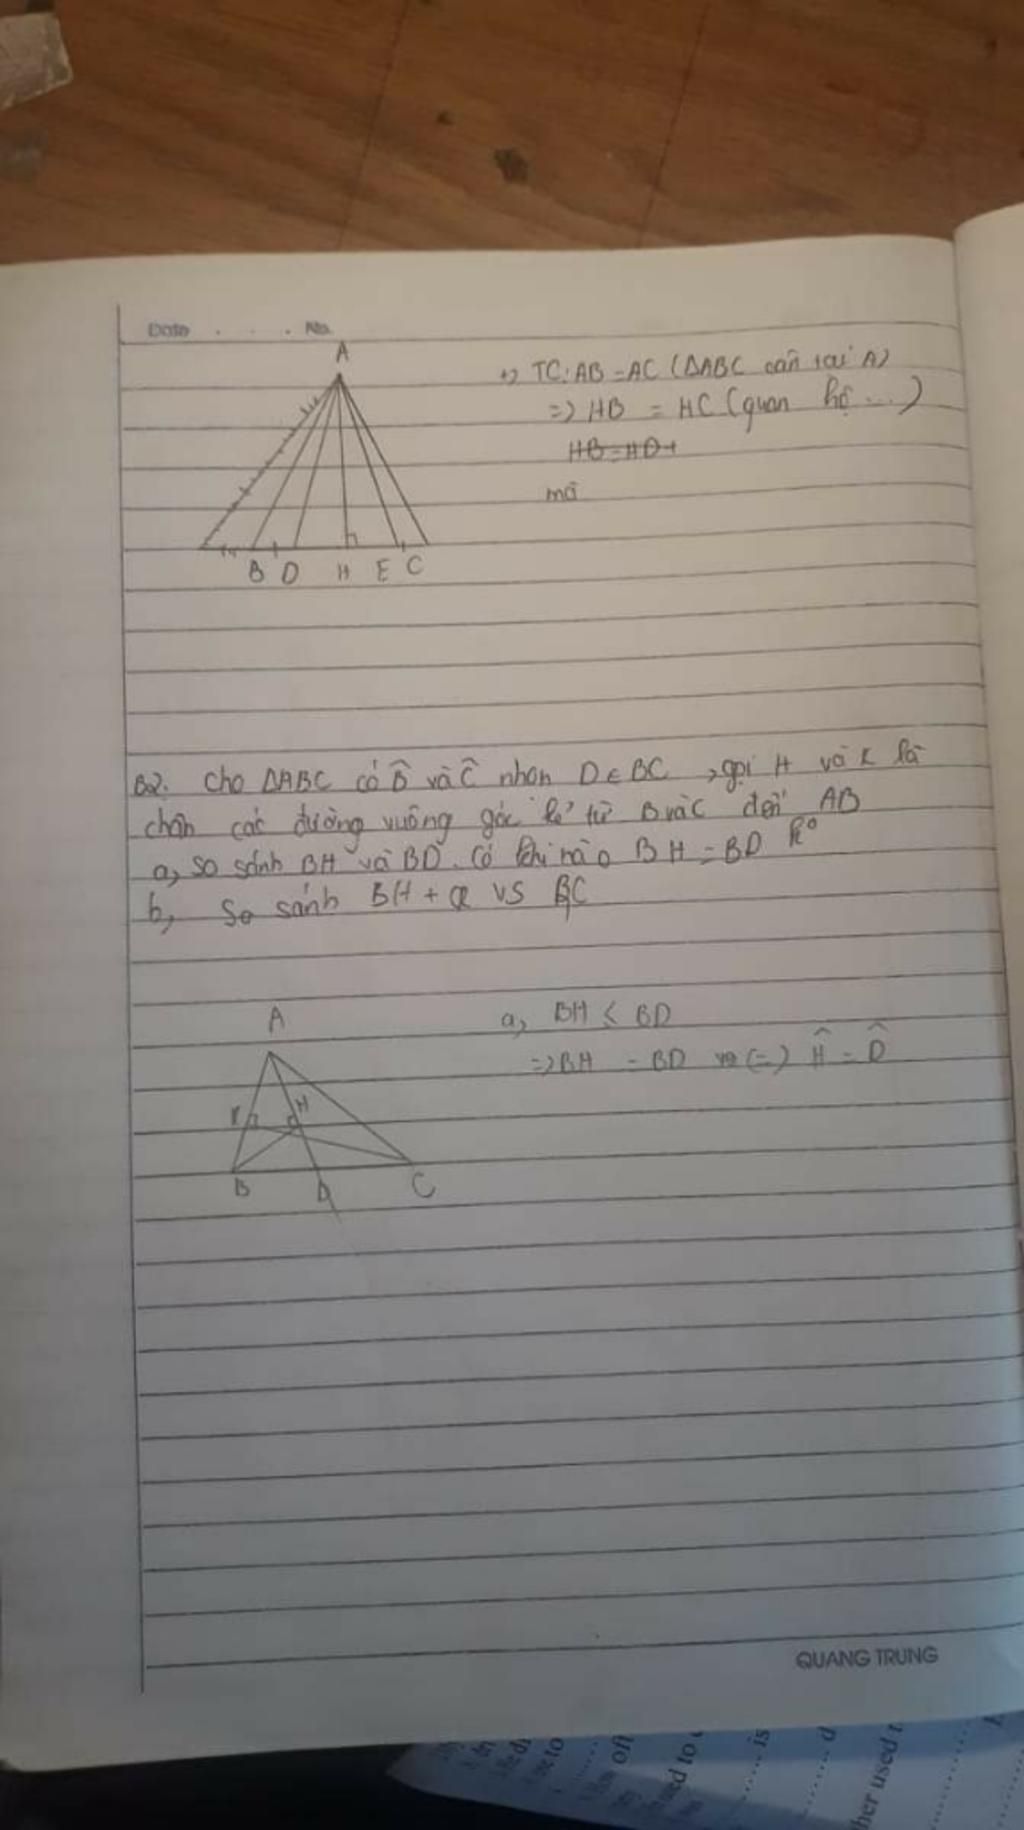 Date . . . No.
A
+) TC: AB = AC (ΔABC cân tại A)
=> HB = HC (quan hệ ...)
HB = HD
mà
B D H E C
B2: Cho ΔABC có B̂ và Ĉ nhọn D ∈ BC, gọi H và K là
chân các đường vuông góc kẻ từ B và C đến AB
a, so sánh BH và BD. Có khi nào BH = BD k°
b, So sánh BH + CK vs BC
A
a, BH < BD
=> BH = BD <=> Ĥ = D̂
K H
B D C
QUANG TRUNG
used to
is
d
her used t